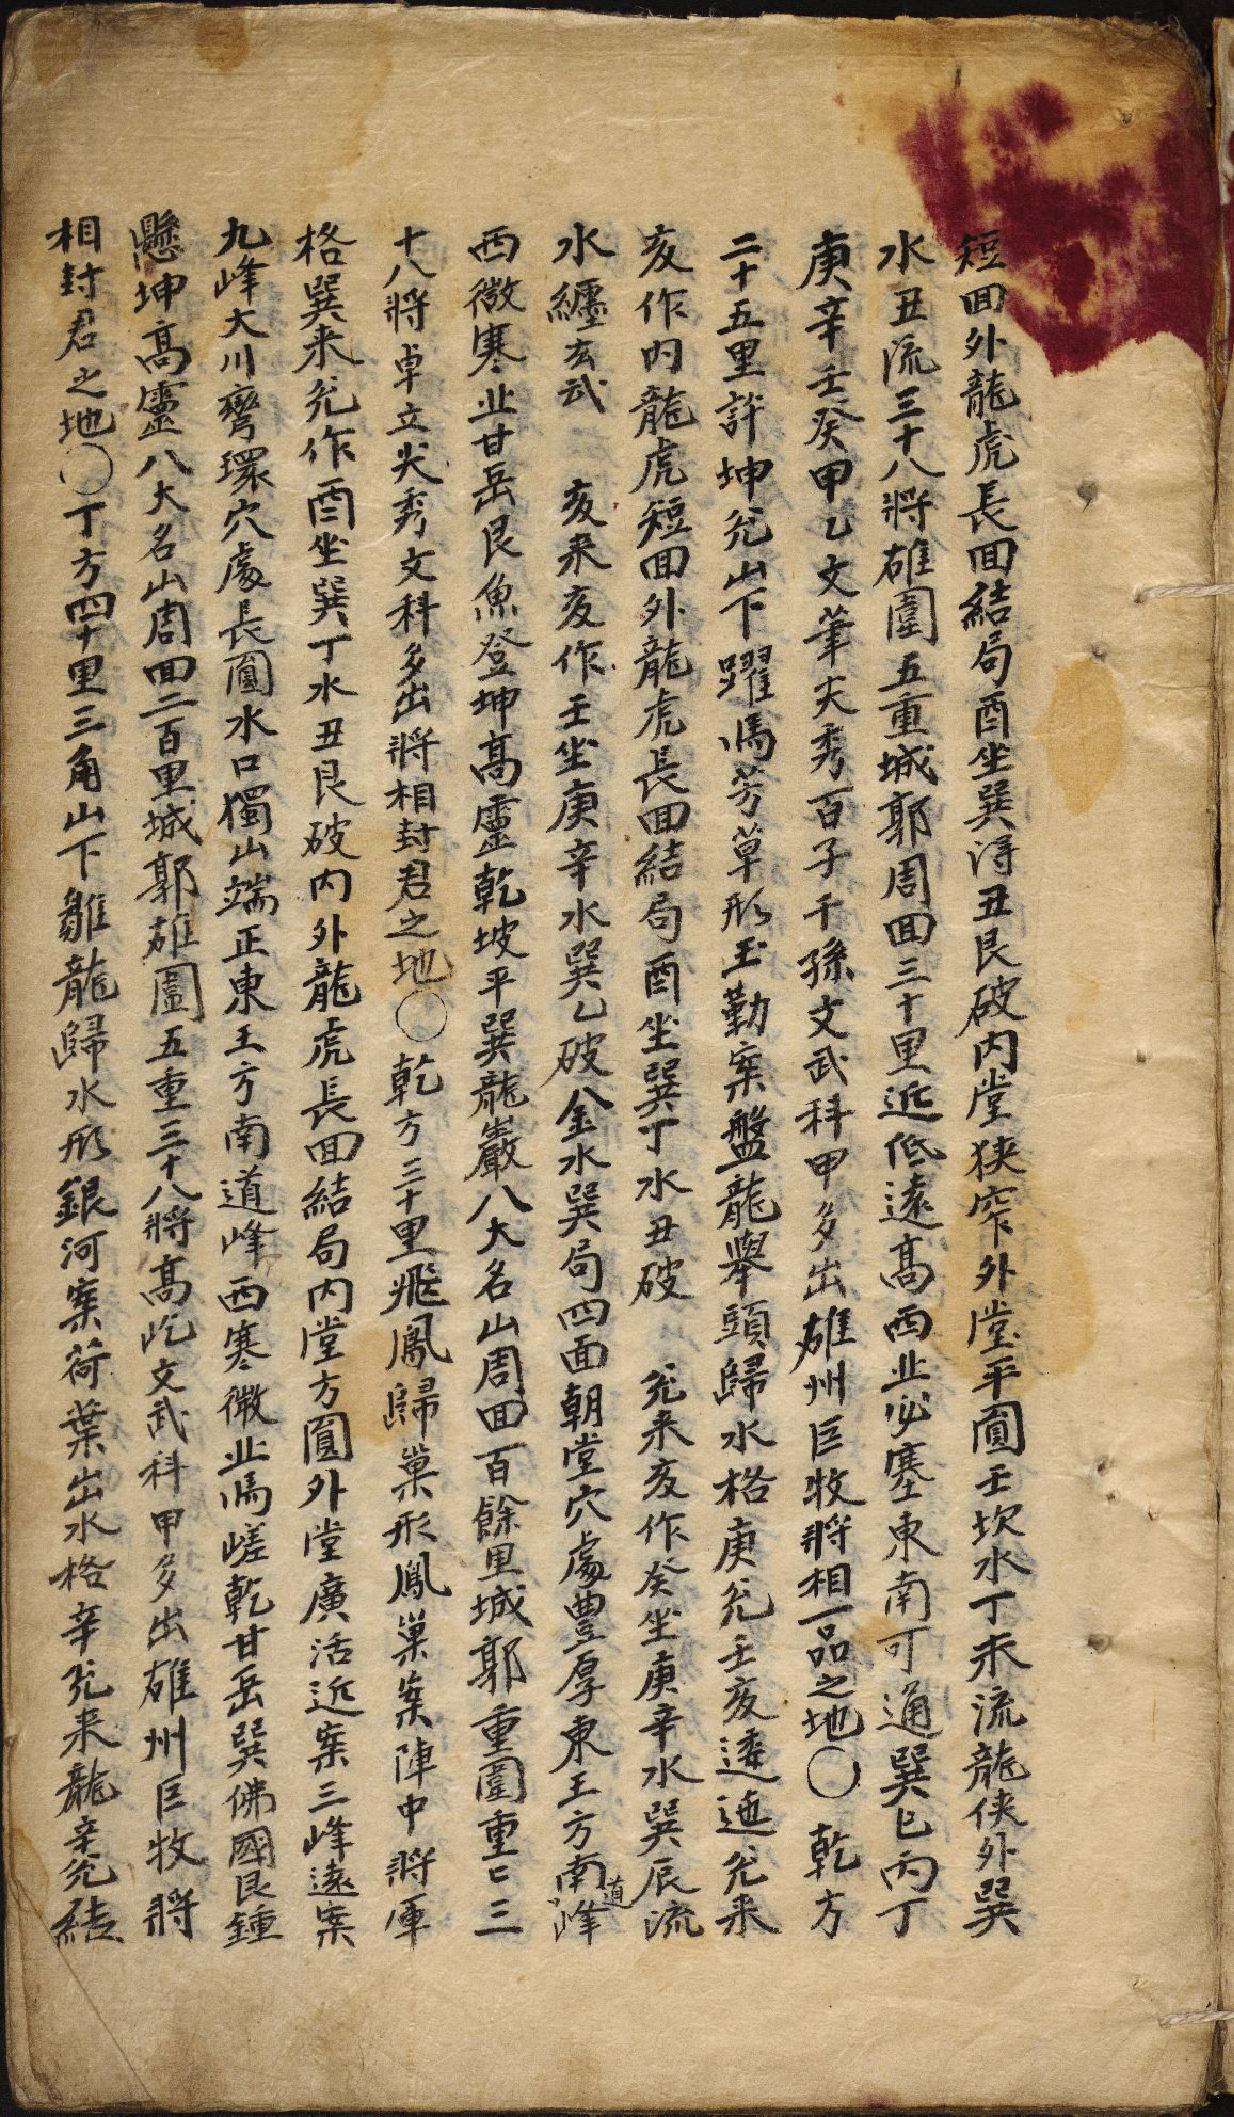 短回外龍虎長回結局酉坐巽淂丑艮破内堂狹窄外堂平圎壬坎水丁未流龍俠外巽
水丑流三十八將雄圍五重城郭周回三十里近低遠髙西北必塞東南可通巽巳丙丁
庚辛壬癸甲乙文筆尖秀百子千孫文武科甲多出雄州巨牧將相一品之地〇乾方
二十五里許坤兊山下躍馬芳草形玉勤案盤龍舉頭歸水格庚兊壬亥逶迤兊来
亥作内龍虎短回外龍虎長回結局酉坐巽丁水丑破 兊来亥作癸坐庚辛水巽辰流
水纏玄武 亥来亥作壬坐庚辛水巽乙破金水巽局四面朝堂穴處豊厚東王方南道峰
西微寒北甘岳艮魚登坤髙靈乾坡平巽龍巖八大名山周回百餘里城郭重圍重〻三
十八將卓立尖秀文科多出將相封君之地〇乾方三十里飛鳳歸巢形鳳巢案陣中將軍
格巽来兊作酉坐巽丁水丑艮破内外龍虎長回結局内堂方圎外堂廣活近案三峰遠案
九峰大川彎環穴處長圎水口獨山端正東王方南道峰西寒微北馬嵯乾甘岳巽佛國艮鍾
懸坤髙靈八大名山周回二百里城郭雄圍五重三十八將髙屹文武科甲多出雄州巨牧將
相封君之地〇丁方四十里三角山下雛龍歸水形銀河案荷葉出水格辛兊来龍辛兊結